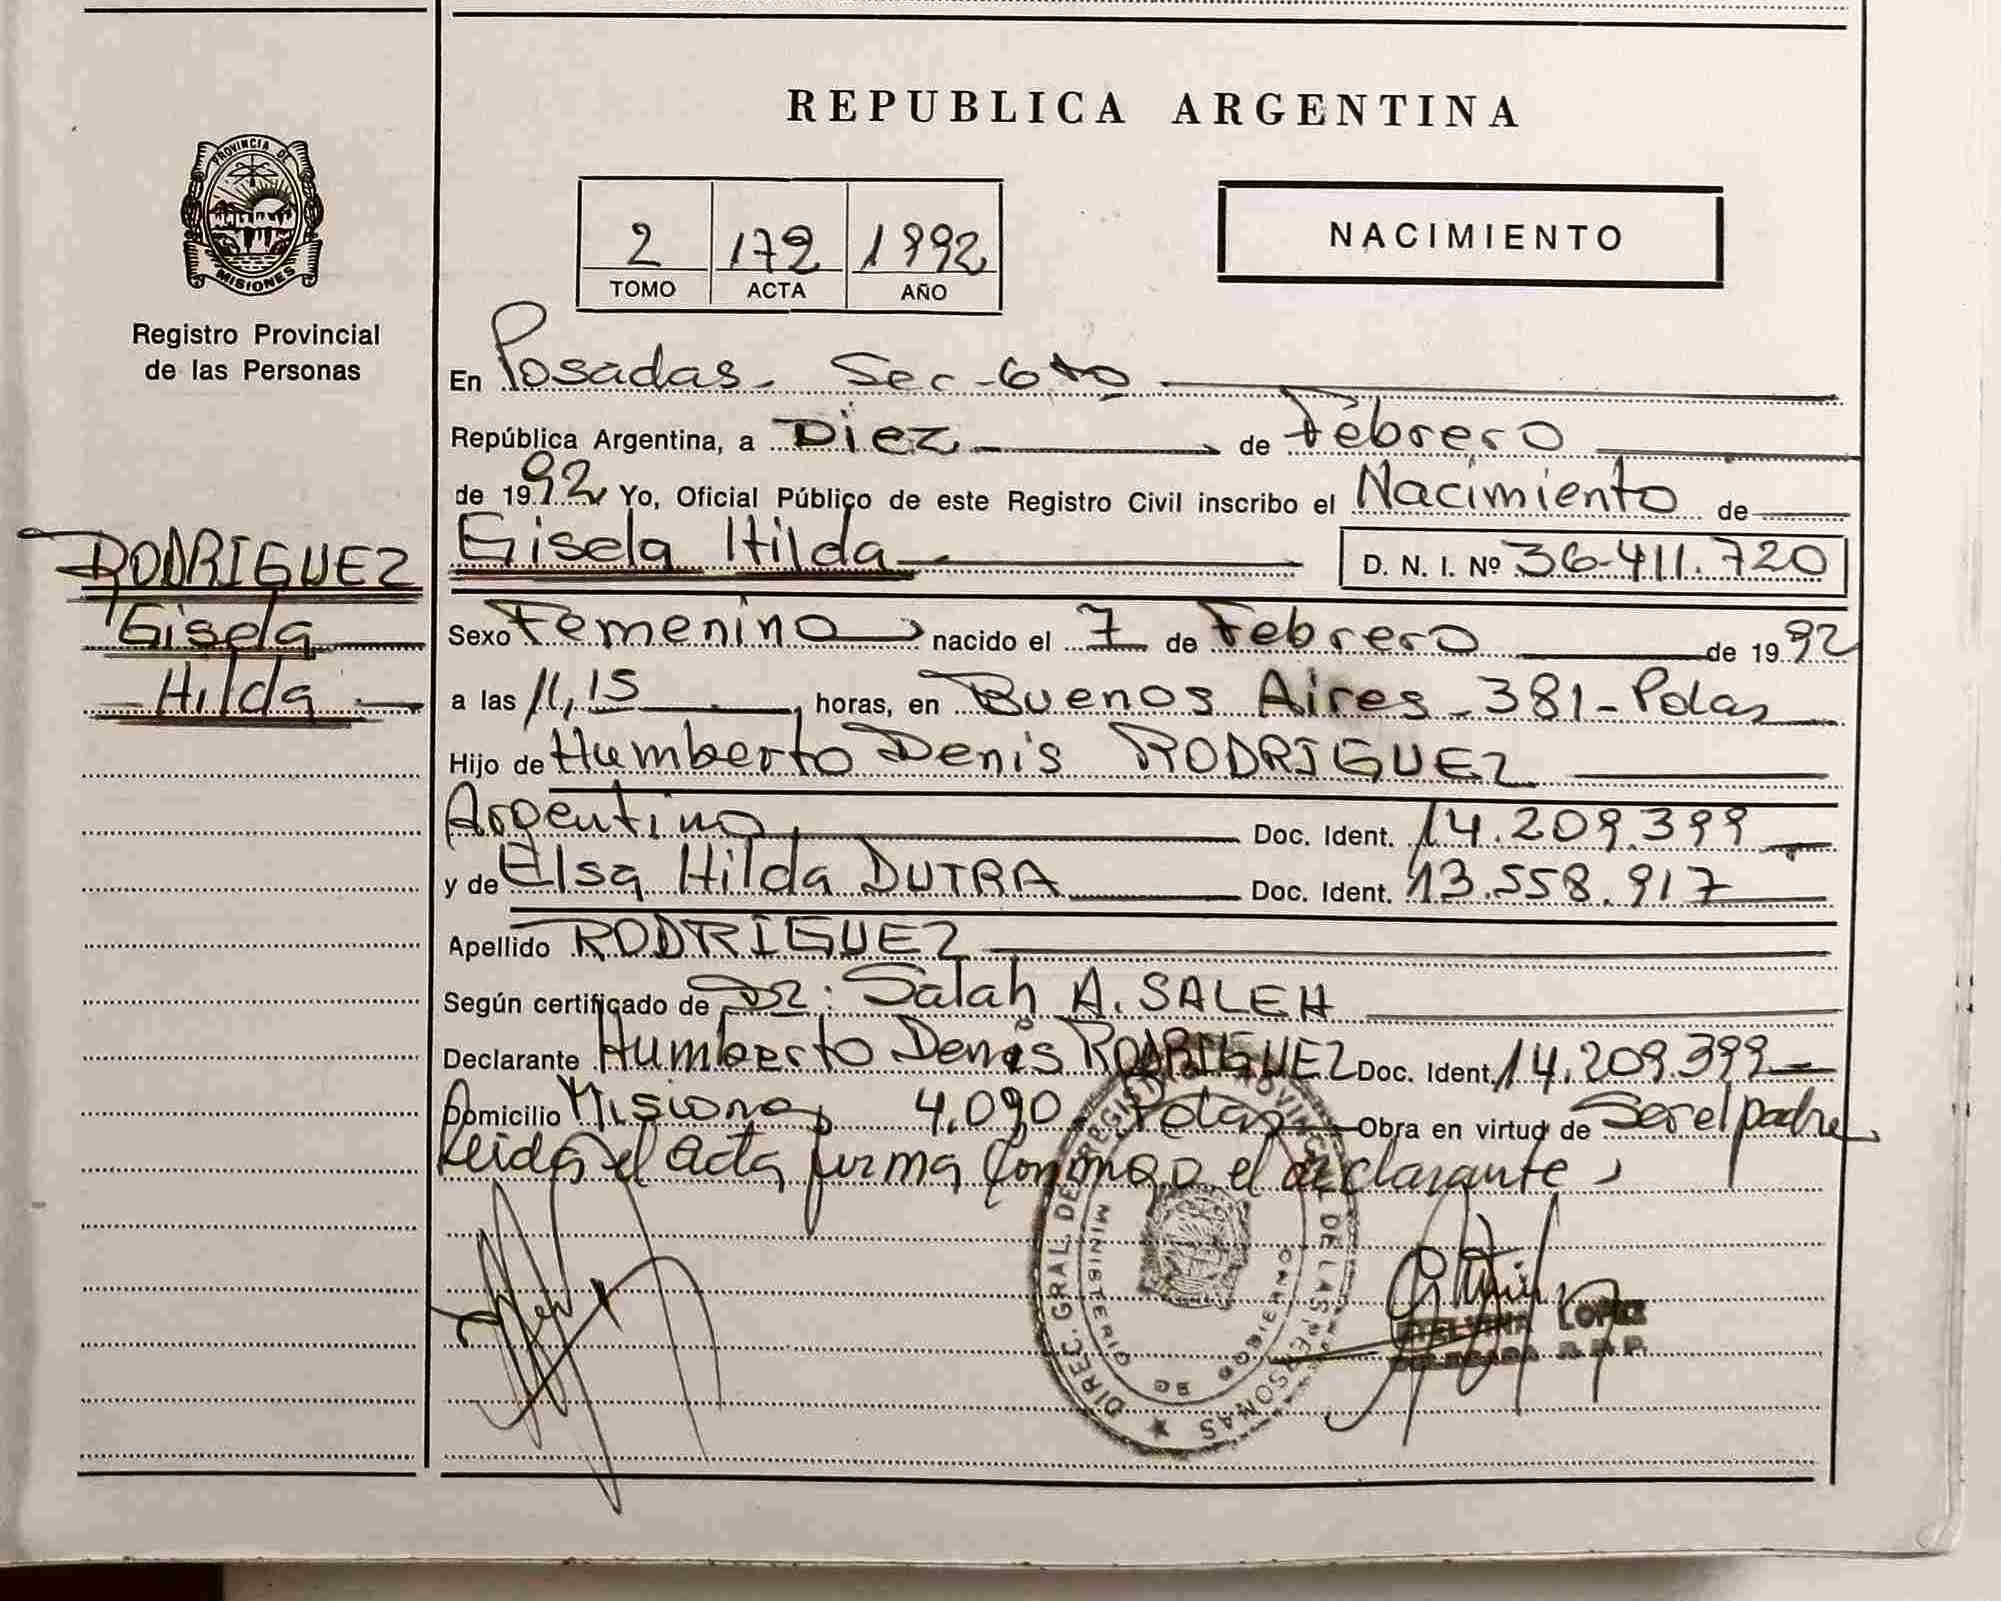 REPUBLICA ARGENTINA
PROVINCIA DE
MISIONES
Registro Provincial
de las Personas
2 172 1992
TOMO ACTA AÑO
NACIMIENTO
En Posadas - Sec - 6to
República Argentina, a Diez de Febrero
de 1992 Yo, Oficial Público de este Registro Civil inscribo el Nacimiento de
RODRIGUEZ
Gisela
Hilda
Gisela Hilda D. N. I. Nº 36.411.720
Sexo Femenino nacido el 7 de Febrero de 1992
a las 11,15 horas, en Buenos Aires - 381 - Pdas
Hijo de Humberto Denis RODRIGUEZ
Argentino Doc. Ident. 14.209.399
y de Elsa Hilda DUTRA Doc. Ident. 13.558.917
Apellido RODRIGUEZ
Según certificado de Dr: Salah A. SALEH
Declarante Humberto Denis RODRIGUEZ Doc. Ident. 14.209.399
Domicilio Misiones 4.090 Pdas Obra en virtud de Ser el padre
Leida el acta firma conmigo el declarante
DIREC. GRAL. DEL REGISTRO PROVINCIAL DE LAS PERSONAS
MINISTERIO DE GOBIERNO
LOPEZ